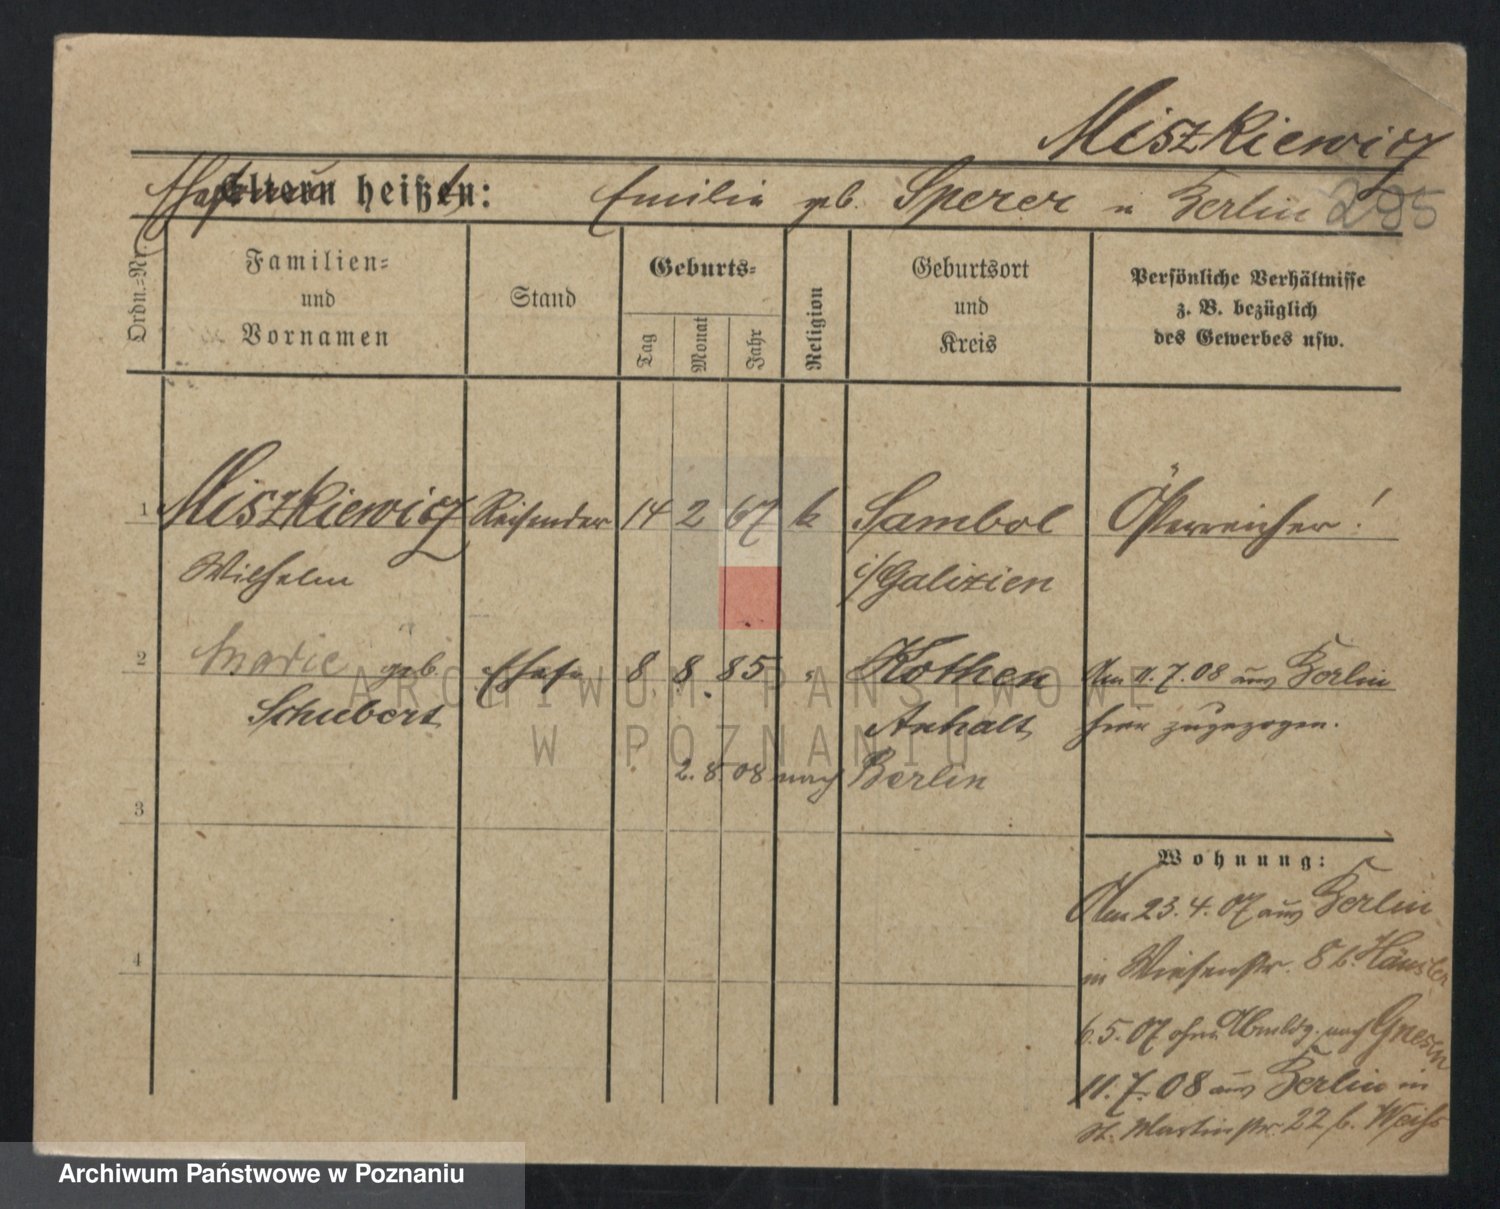 Miszkiewicz
Eltern heißen: Emilie geb. Sperer in Berlin 295
Ordn.=Nr.
Familien=
und
Vornamen
Stand
Geburts=
Tag
Monat
Jahr
Religion
Geburtsort
und
Kreis
Persönliche Verhältnisse
z. B. bezüglich
des Gewerbes usw.
1 Miszkiewicz Reisender 14 2 67 k Sambol Österreicher!
Wilhelm i/Galizien
2 Marie geb. Ehefr 8. 8. 85 " Köthen Am 11.7.08 aus Berlin
Schubert Anhalt hier zugezogen.
2.8.08 nach Berlin
3
Wohnung:
Am 23.4.07 aus Berlin
in Wiesenstr. 8 b. Häusler
4
6.5.07 ohne Abmldg. nach Gnesen
11.7.08 aus Berlin in
St. Martinstr. 22 b. Weiß
ARCHIWUM PAŃSTWOWE
W POZNANIU
Archiwum Państwowe w Poznaniu